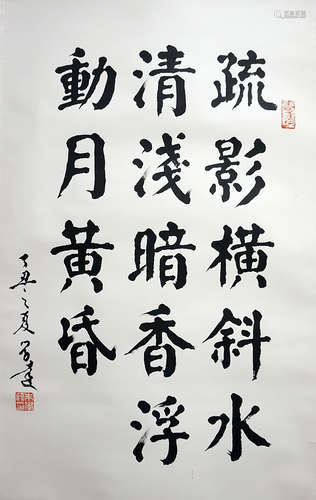 疏影橫斜水
清淺暗香浮
動月黃昏
丁丑之夏